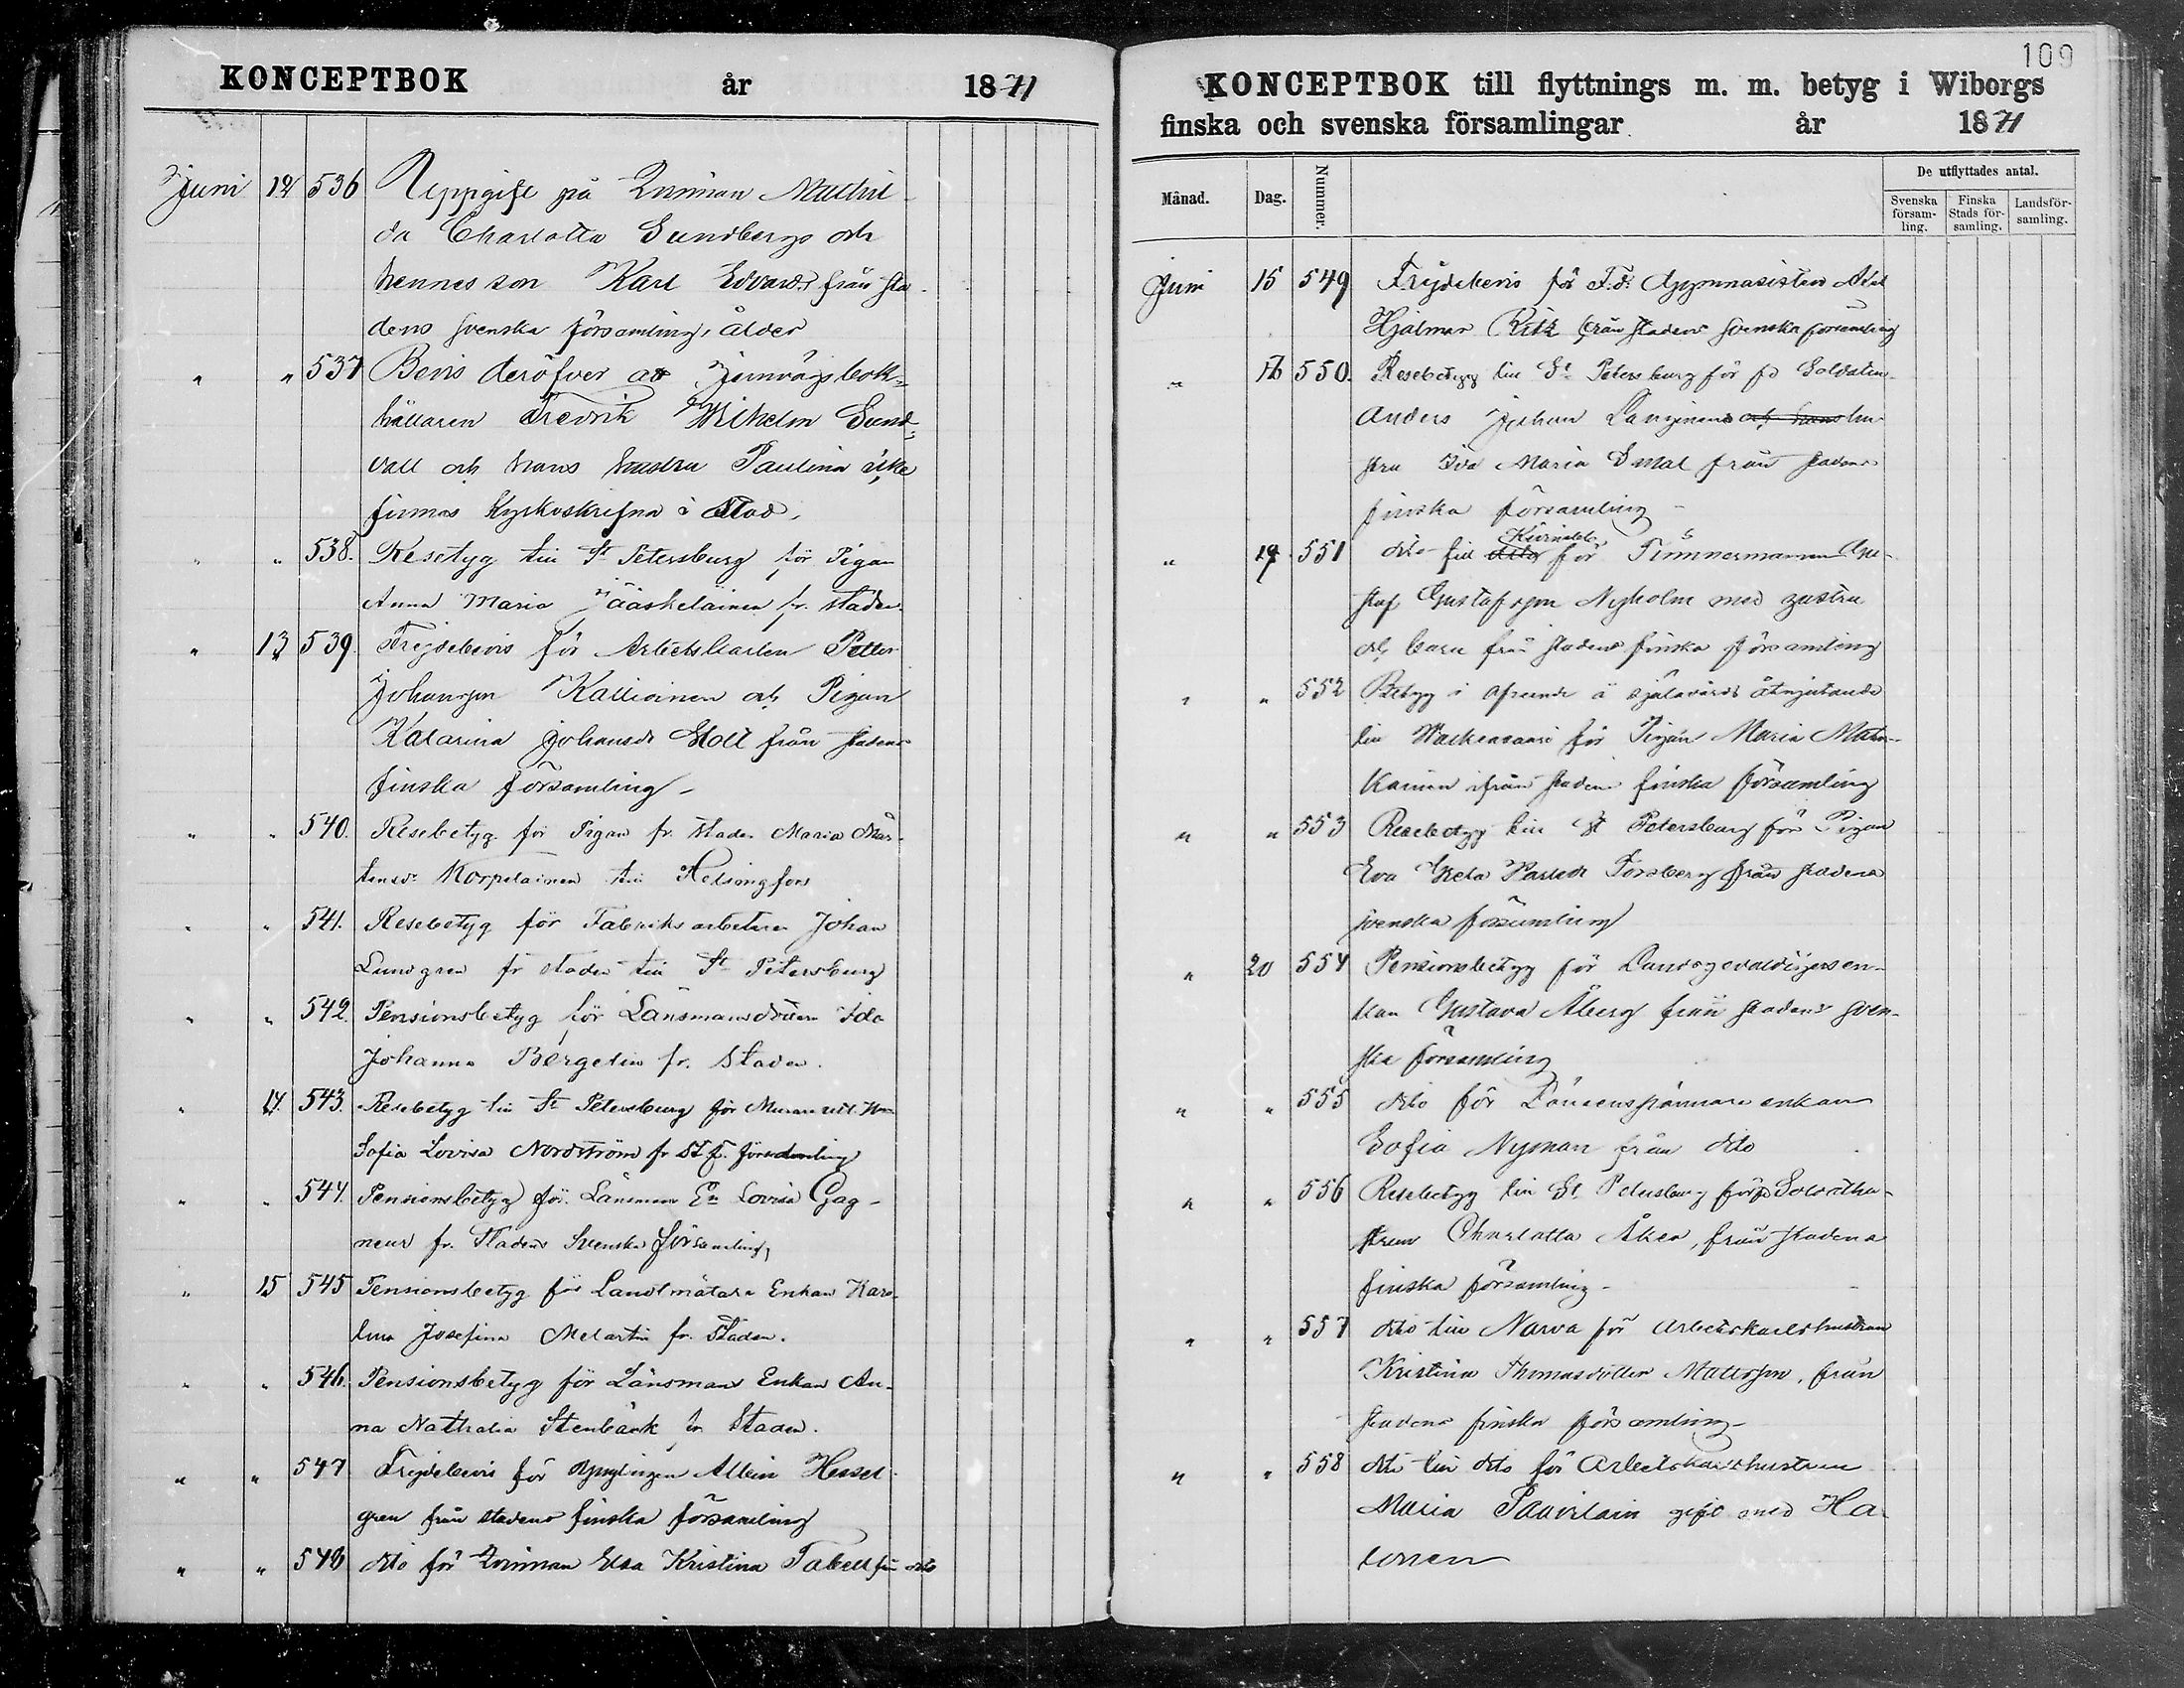 KONCEPTBOK år 1871
Juni 12 536 Uppgift på Qvinnan Mathil-
da Charlotta Sundbergs och
hennes son Karl Edvards från sta-
dens svenska församling, ålder
" " 537 Bevis deröfver att Jernvägsbok-
hållaren Fredrik Wilhelm Sund-
vall och hans hustru Paulina icke
finnas kyrkoskrifna i Stad.
" " 538. Resetyg till St Petersburg för Pigan
Anna Maria Jääskeläinen fr. staden
" 13 539. Frejdebevis för Arbetskarlen Petter
Johansson Kallioinen och Pigan
Katarina Johansdr Holl från stadens
finska församling
" " 540. Resebetyg för Pigan fr. staden Maria Mår-
tensdr Korpelainen till Helsingfors
" " 541. Resebetyg för Fabriksarbetaren Johan
Lundgren fr staden till St Petersburg
" " 542. Pensionsbetyg för Länsmansdottern Ida
Johanna Bergelin fr. Staden.
" 14. 543. Resebetyg till St Petersburg för
Sofia Lovisa Nordström fr St. F. församling
" " 544. Pensionsbetyg för Länsmans En Lovisa Gag-
neur fr. Stadens Svenska församling
" 15 545 Pensionsbetyg för Landtmätare Enkan Karo-
lina Josefina Melartin fr. Staden.
" " 546. Pensionsbetyg för Länsmans Enkan An-
na Nathalia Stenbäck fr Staden.
" " 547 Frejdebevis för Ynglingen Albin Hessel-
gren från stadens finska församling
" " 548 dito för Qvinnan Elsa Kristina Tabell från dito
109
KONCEPTBOK till flyttnings m. m. betyg i Wiborgs
finska och svenska församlingar år 1871
Månad. Dag. Nummer. De utflyttades antal.
Svenska församling. Finska Stads församling. Landsförsamling.
Juni 15 549 Frejdebevis för F.d. Gymnasisten Axel
Hjalmar Ritz från stadens svenska församling
" 16 550. Resebetyg till St Petersburg för fd Soldaten
Anders Johan Langinens och hans hu-
stru Eva Maria Smal från stadens
finska församling
" 19 551 dito till dito Kivinebb för Timmermannen Gu-
staf Gustafsson Nyholm med hustru
och barn från stadens finska församling
" " 552 Betyg i afseende å själavårds åtnjutande
till Walkeasaari för Pigan Maria
kainen ifrån stadens finska församling
" " 553 Resebetyg till St Petersburg för Pigan
Eva Greta Karlsdr Forsberg från stadens
svenska församling
" 20 554 Pensionsbetyg för
kan Gustava Åberg från stadens sven-
ska församling
" " 555 dito för enkan
Sofia Nyman från dito
" " 556 Resebetyg till St Petersburg för fd Soldathu-
strun Charlotta Åker, från stadens
finska församling
" " 557 dito till Narva för arbetskarlshustrun
Kristina Thomasdotter Mattsson, från
stadens finska församling
" " 558 dito till dito för Arbetskarlshustrun
Maria Paavilain gift med Ha-
lonen